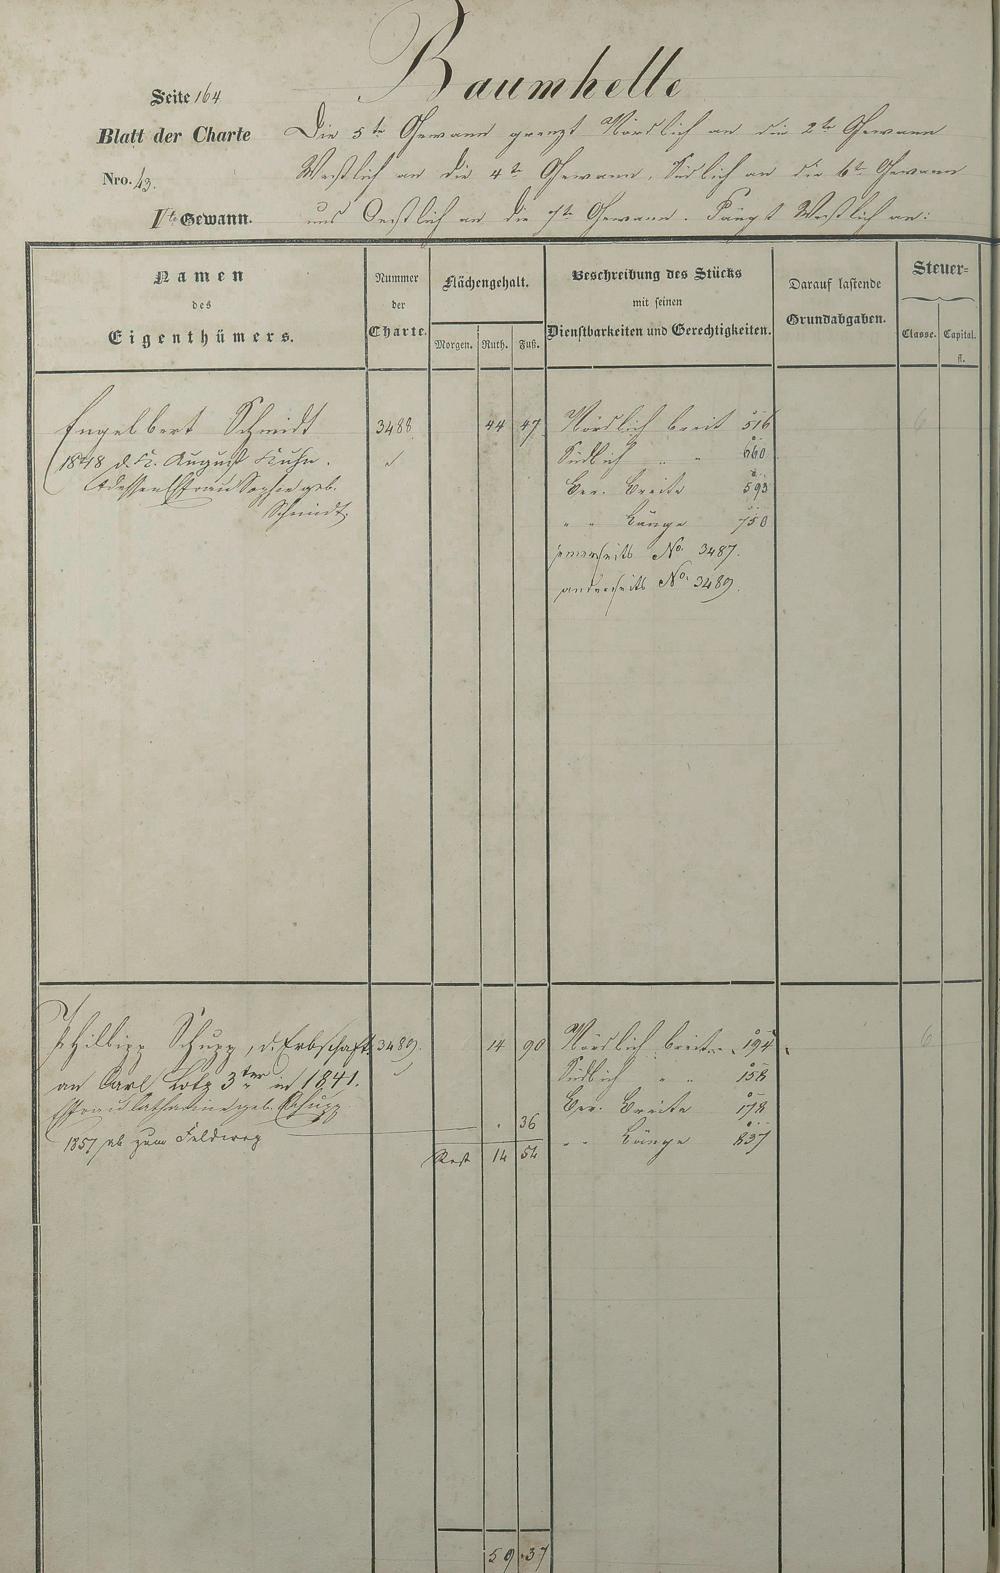 Baumhelle
Seite 164
Blatt der Charte
Nro. 43.
Vte Gewann.
Die 5te Gewann grenzt Nördlich an die 2te Gewann
Westlich an die 4te Gewann, Südlich an die 6te Gewann
und Oestlich an die 7te Gewann. Fängt Westlich an:
Namen
des
Eigenthümers.
Nummer
der
Charte.
Flächengehalt.
Morgen. Ruth. Fuß.
Beschreibung des Stücks
mit seinen
Dienstbarkeiten und Gerechtigkeiten.
Darauf lastende
Grundabgaben.
Steuer=
Classe. Capital.
fl.
Engelbert Schmidt 3488 44 47 Nördlich breit 516 6
1848 d. K. August Kuhn. Südlich " " 660
dessen Ehefrau Sophie geb. Ber. Breite 593
Schmidt. " " Länge 750
einerseits No. 3487.
anderseits No. 3489.
Philipp Schupp, d. Erbschaft 3489. 14 90 Nördlich breit 194 6
an Carl Lotz 3ter in 1841. Südlich " " 158
Ehefrau Catharine geb. Schupp Ber. Breite 178
1857 ab zum Feldweg . 36 " " Länge 837
Rest 14 54
59 . 37